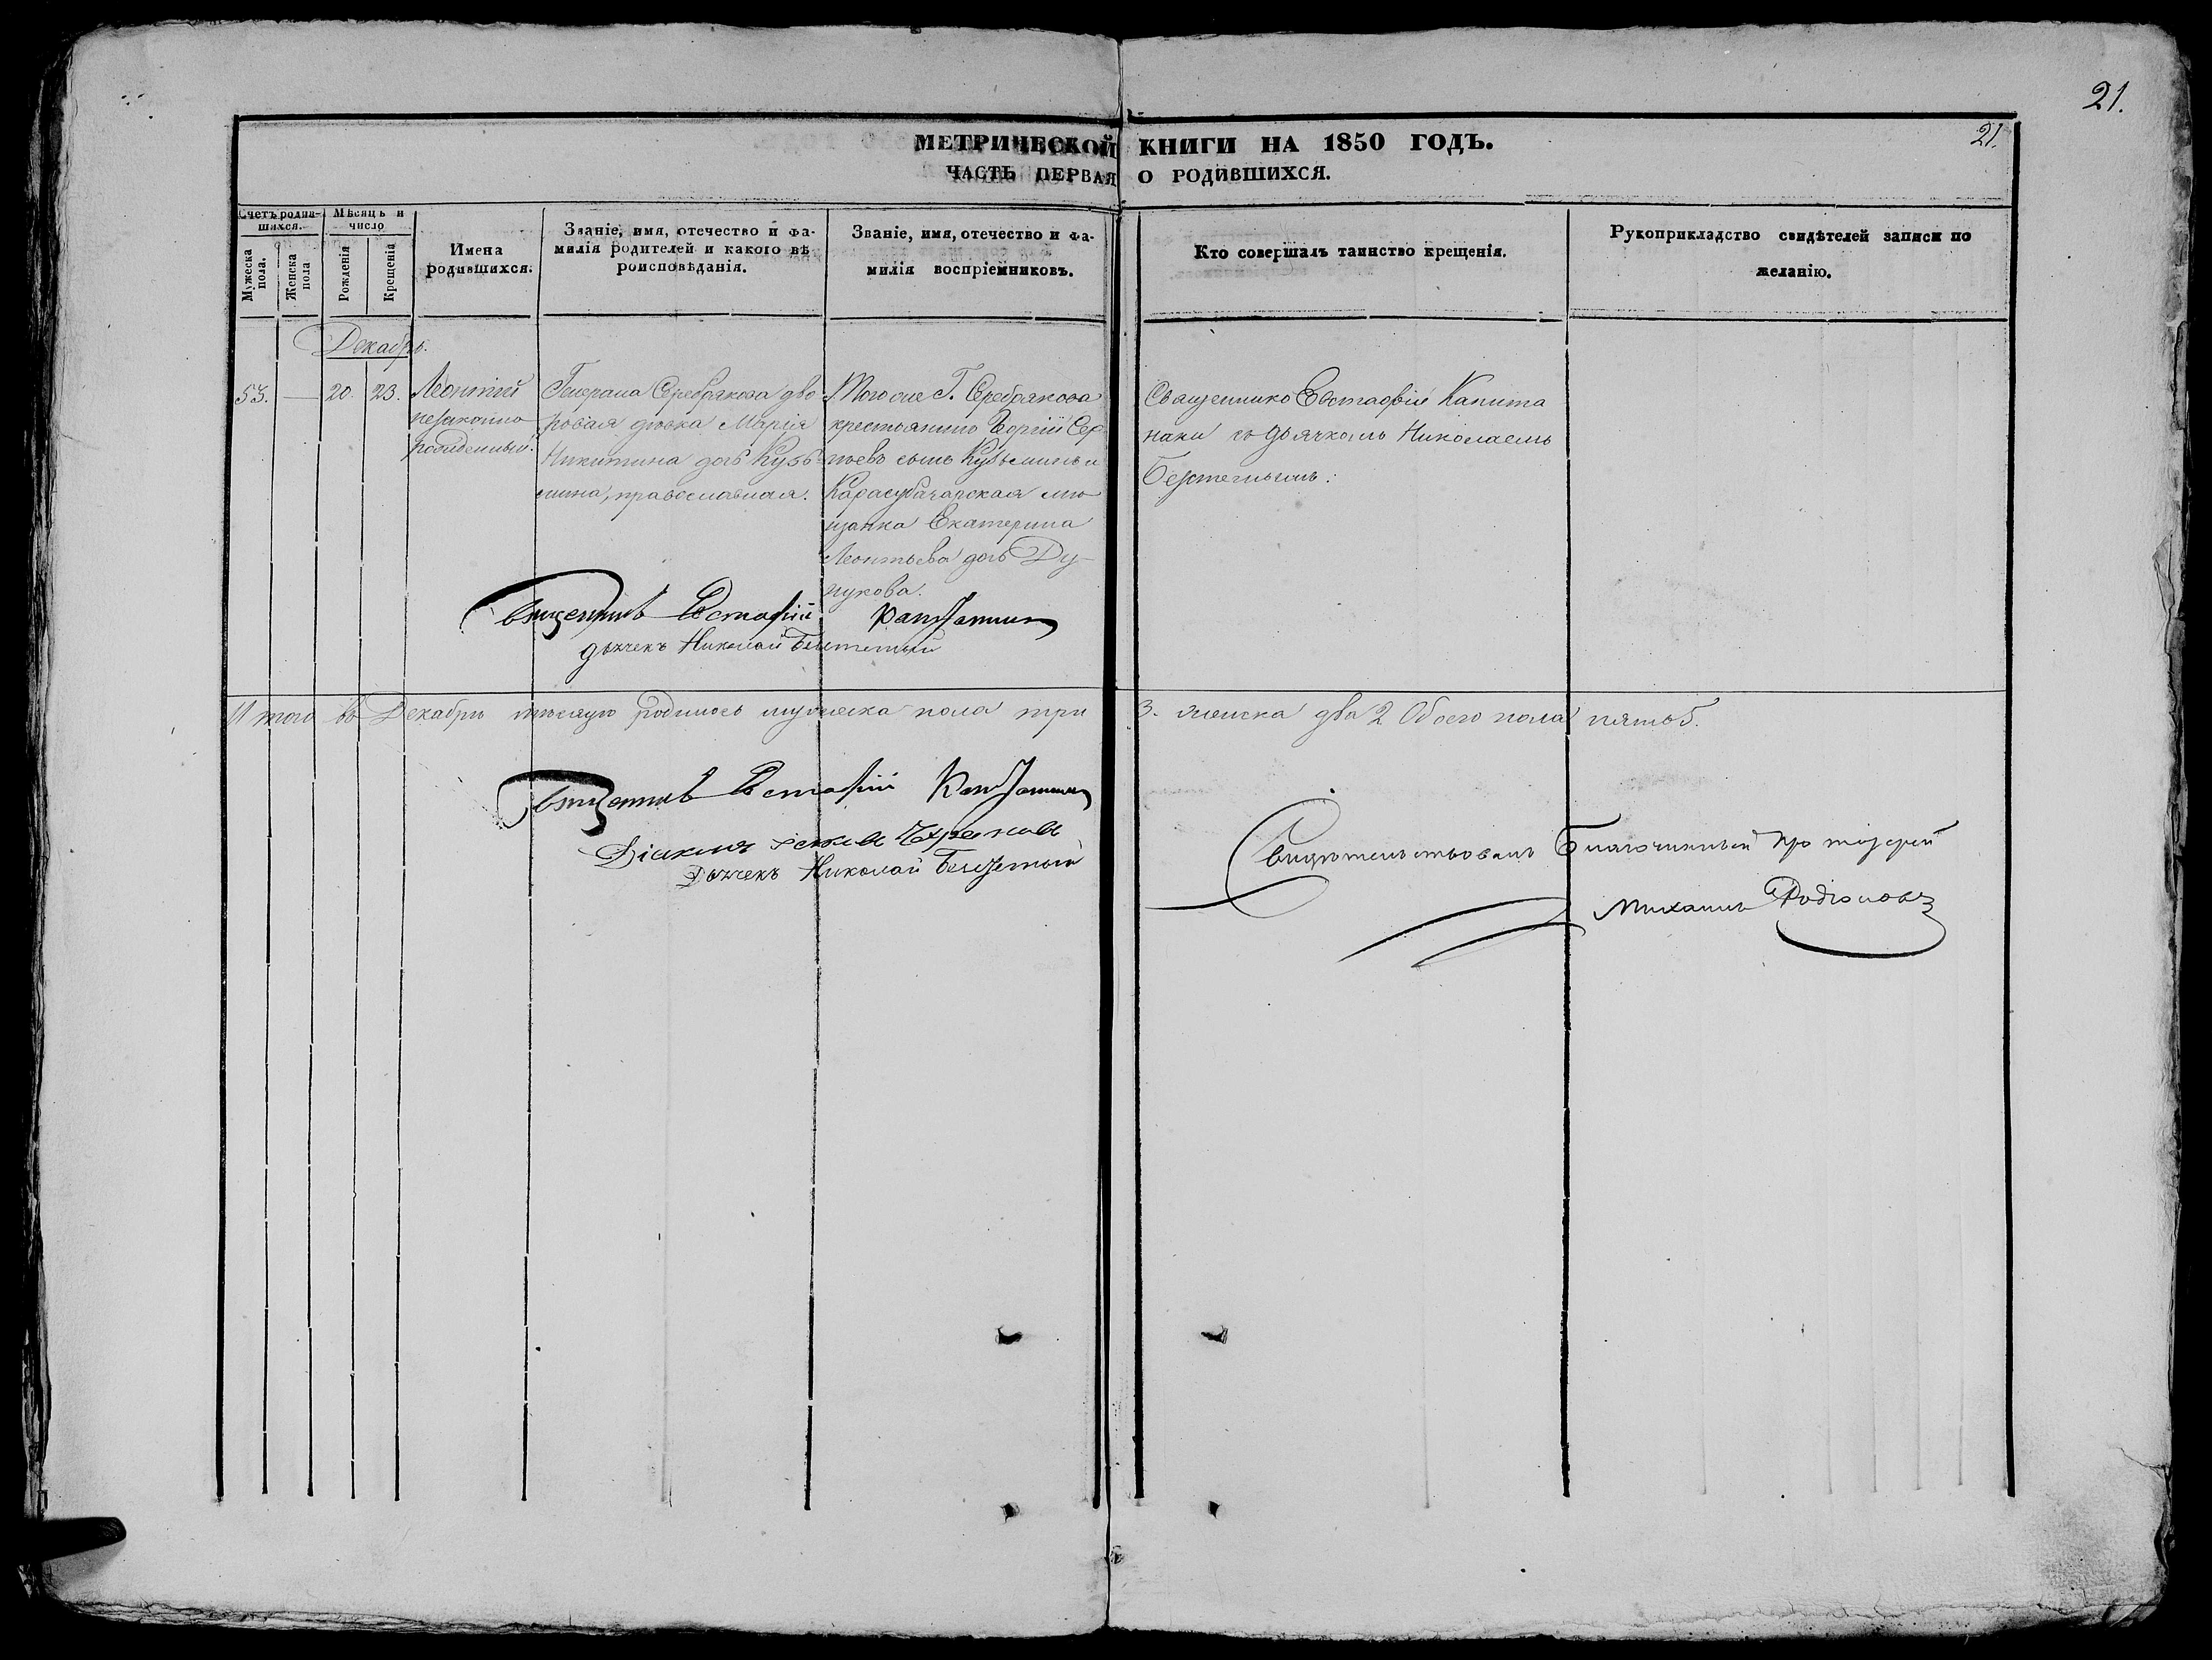 21.
21.
МЕТРИЧЕСКОЙ КНИГИ НА 1850 ГОДЪ.
ЧАСТЬ ПЕРВАЯ О РОДИВШИХСЯ.
Счетъ родив-
шихся.
Мужеска
пола.
Женска
пола
Мѣсяцъ и
число
Рожденія
Крещенія
Имена
родившихся.
Званіе, имя, отечество и фа-
милія родителей и какого вѣ
роисповѣданія.
Званіе, имя, отечество и фа-
милія воспріемниковъ.
Кто совершалъ таинство крещенія.
Рукоприкладство свидѣтелей записи по
желанію.
Декабрь.
53. — 20. 23.
Леонтій
незаконно
рожденный.
Генерала Серебрякова дво
ровая дѣвка Марія
Никитина дочь Кузь
мина, православная.
Того же Г. Серебрякова
крестьянинъ Георгій Сер
гѣевъ сынъ Кузьминъ и
Карасубазарская мѣ
щанка Екатерина
Леонтьева дочь Ду-
Священникъ Евстафій Капита
наки съ дьячкомъ Николаемъ
Священникъ Евстафій
дьячекъ Николай
Итого въ Декабрѣ мѣсяцѣ родилось мужеска пола три 3. женска два 2 Обоего пола пять 5.
Священникъ Евстафій
Діаконъ
Дьячекъ Николай
Свидѣтельствовалъ Благочинный протоіерей
Михаилъ Родіоновъ